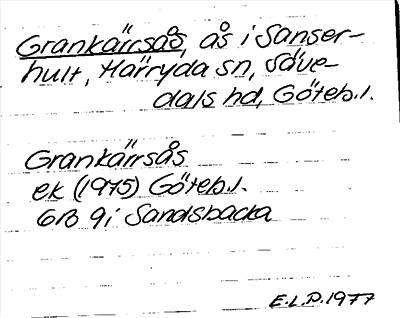 Grankärrsås, ås i Sanser-
hult, Härryda sn, Säve-
dals hd, Göteb.l.
Grankärrsås
ek (1975) Göteb.l.
6B 9i Sandsbacka
E.L.P.1977